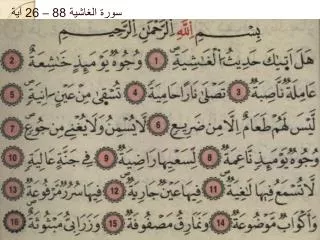 سورة الغاشية 88 – 26 آية
بِسْمِ اللَّهِ الرَّحْمَٰنِ الرَّحِيمِ
هَلْ أَتَىٰكَ حَدِيثُ ٱلْغَٰشِيَةِ 1 وُجُوهٌ يَوْمَئِذٍ خَٰشِعَةٌ 2
عَامِلَةٌ نَّاصِبَةٌ 3 تَصْلَىٰ نَارًا حَامِيَةً 4 تُسْقَىٰ مِنْ عَيْنٍ ءَانِيَةٍ 5
لَّيْسَ لَهُمْ طَعَامٌ إِلَّا مِن ضَرِيعٍ 6 لَّا يُسْمِنُ وَلَا يُغْنِى مِن جُوعٍ 7
وُجُوهٌ يَوْمَئِذٍ نَّاعِمَةٌ 8 لِّسَعْيِهَا رَاضِيَةٌ 9 فِى جَنَّةٍ عَالِيَةٍ 10
لَّا تَسْمَعُ فِيهَا لَٰغِيَةً 11 فِيهَا عَيْنٌ جَارِيَةٌ 12 فِيهَا سُرُرٌ مَّرْفُوعَةٌ 13
وَأَكْوَابٌ مَّوْضُوعَةٌ 14 وَنَمَارِقُ مَصْفُوفَةٌ 15 وَزَرَابِىُّ مَبْثُوثَةٌ 16